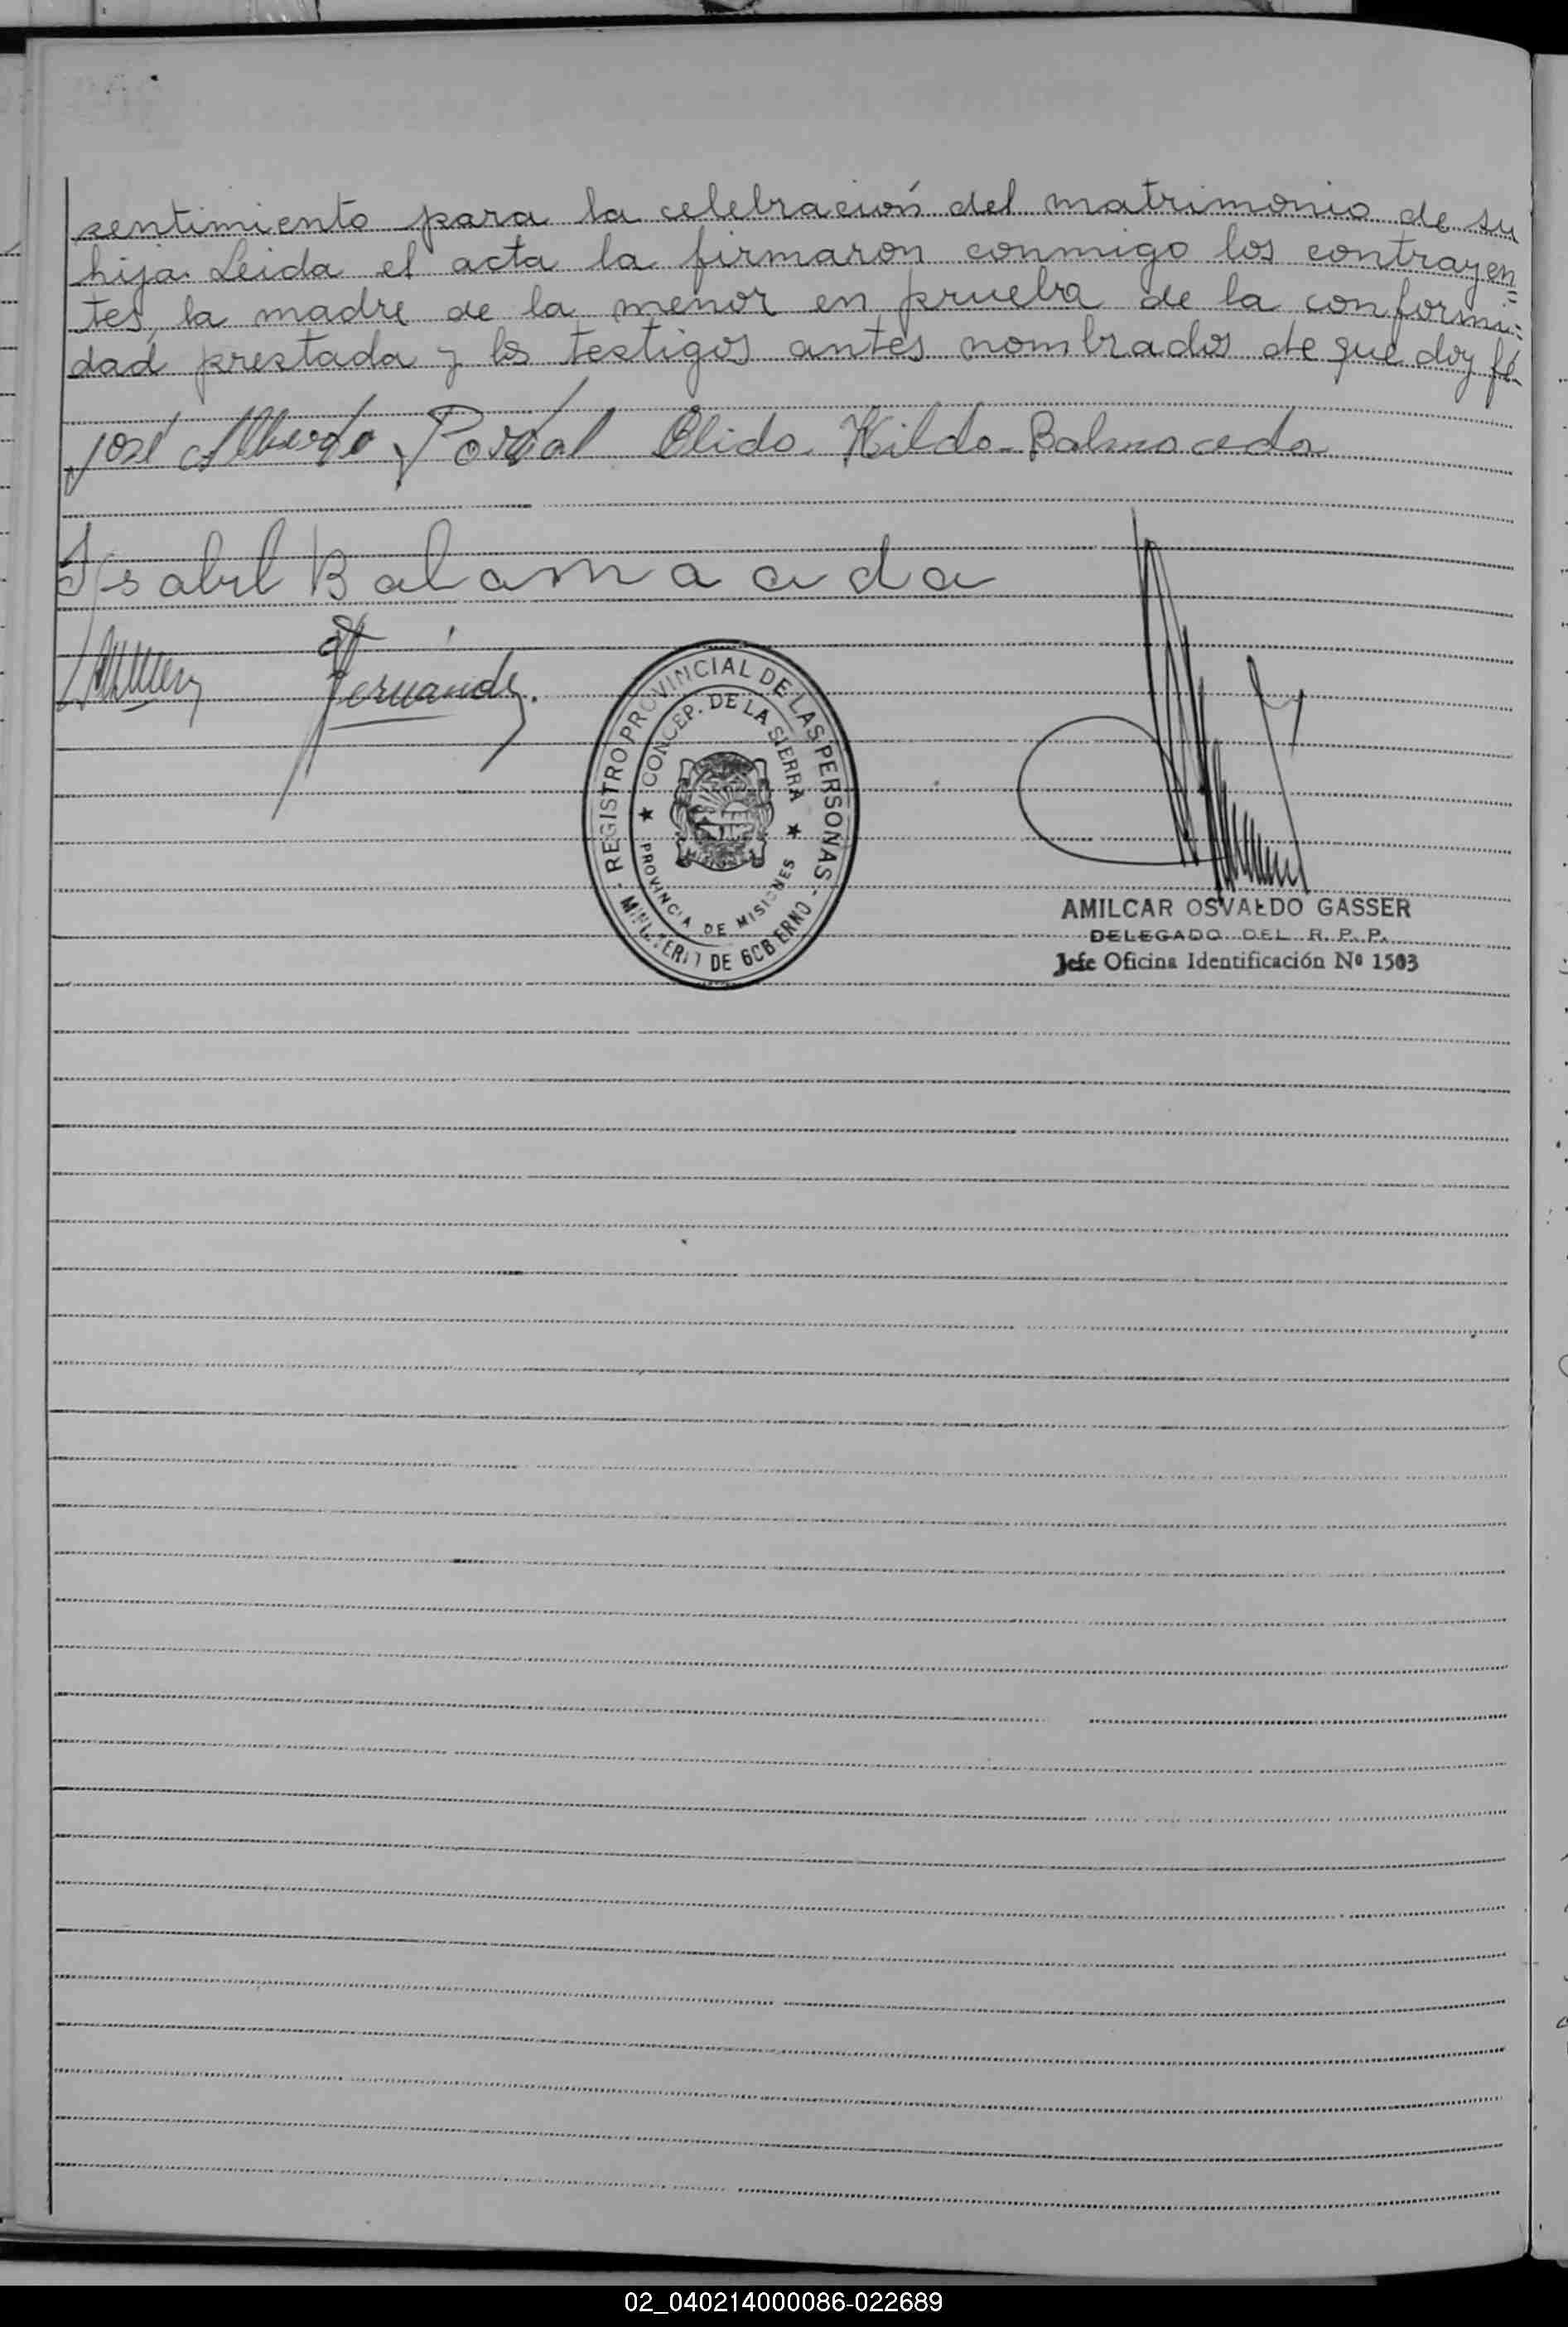 sentimiento para la celebración del matrimonio de su
hija. Leida el acta la firmaron conmigo los contrayen=
tes, la madre de la menor en prueba de la conformi=
dad prestada y los testigos antes nombrados de que doy fé-
José Alberto Portal Elida Hilda Balmaceda
Isabel Balamaceda
Fernández.
REGISTRO PROVINCIAL DE LAS PERSONAS
CONCEP. DE LA SIERRA
PROVINCIA DE MISIONES
MINISTERIO DE GOBIERNO
AMILCAR OSVALDO GASSER
DELEGADO DEL R. P. P.
Jefe Oficina Identificación Nº 1503
02_040214000086-022689